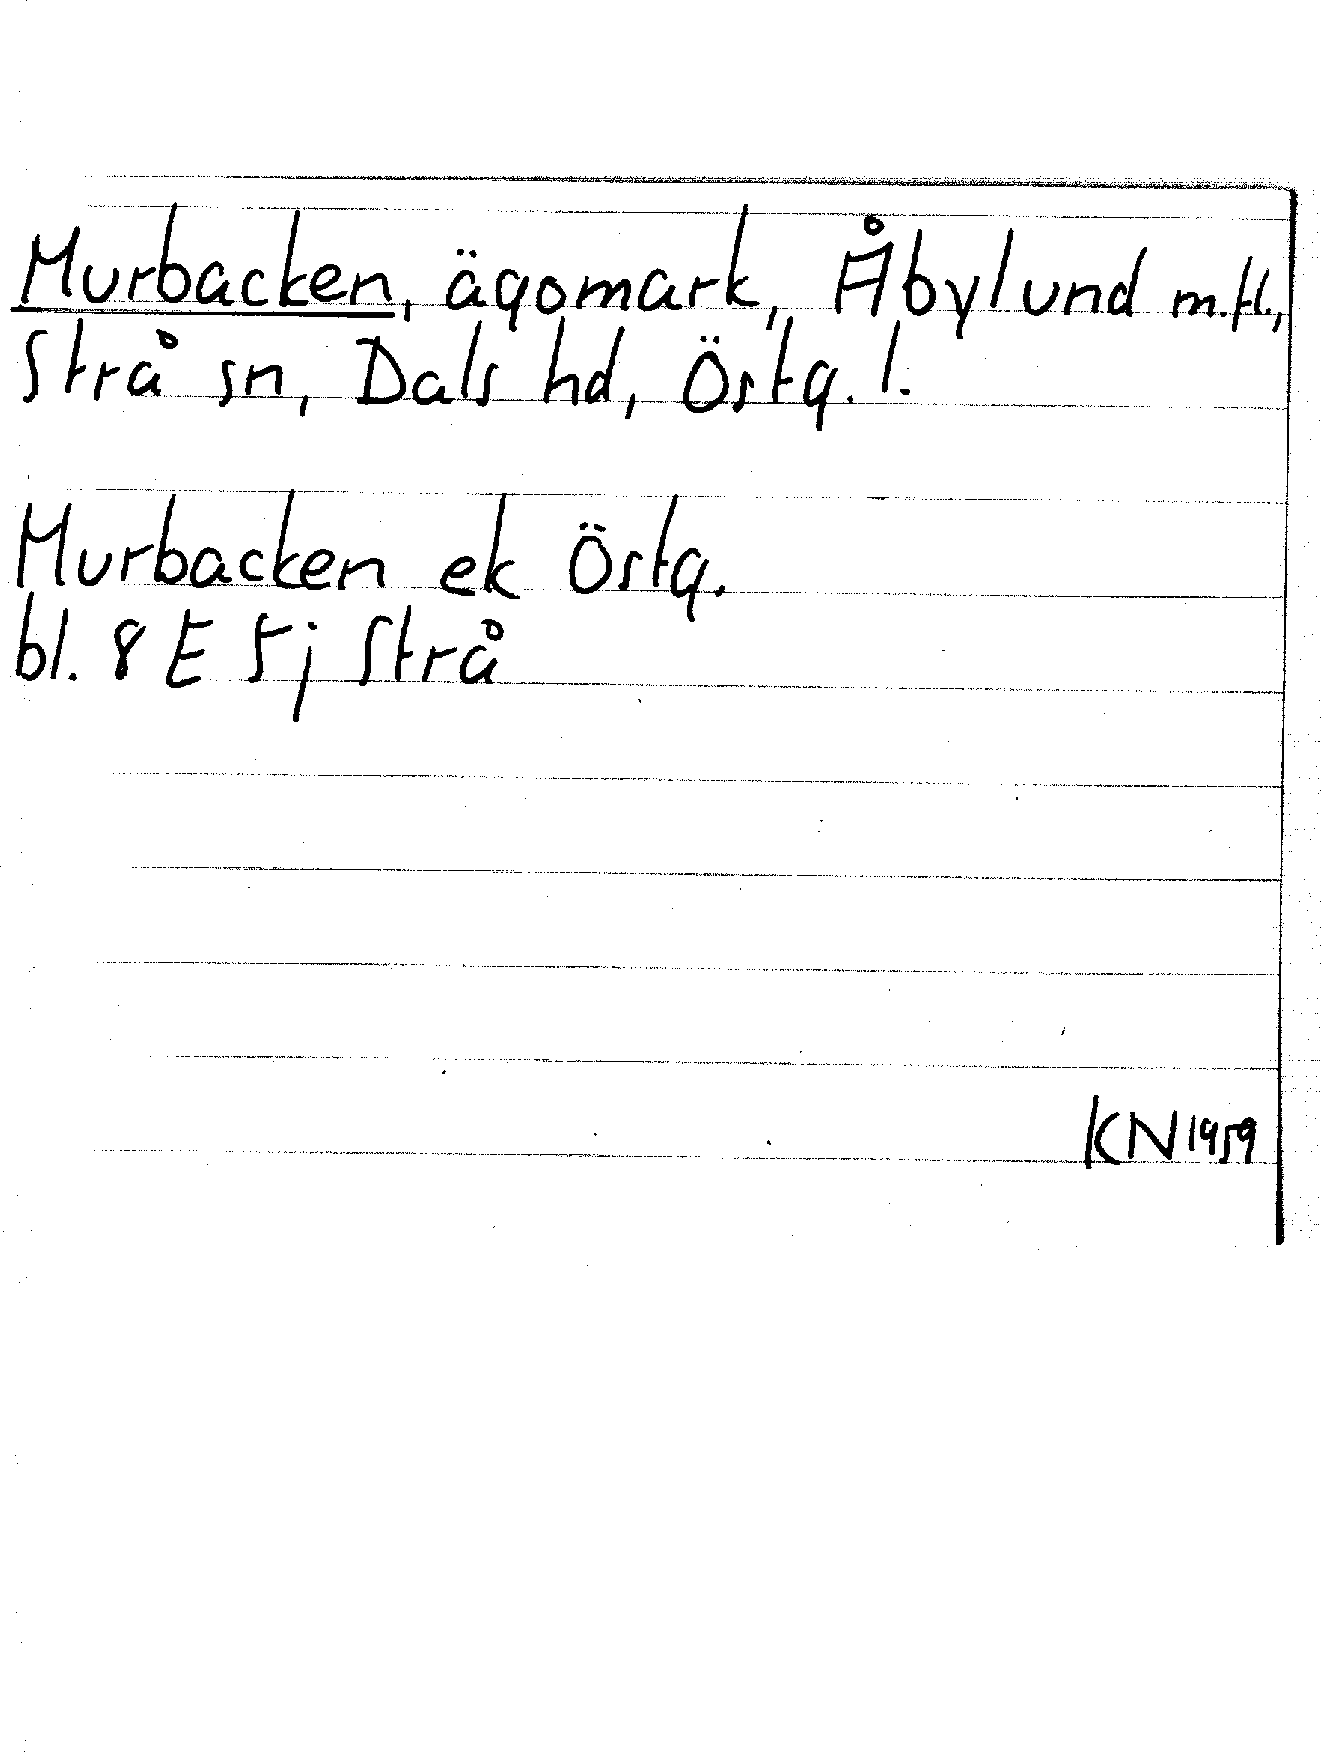 Murbacken, ägomark, Åbylund m.fl.,
Strå sn, Dals hd, Östg. l.
Murbacken ek Östg.
bl. 8 E 5 j Strå
KN 1959